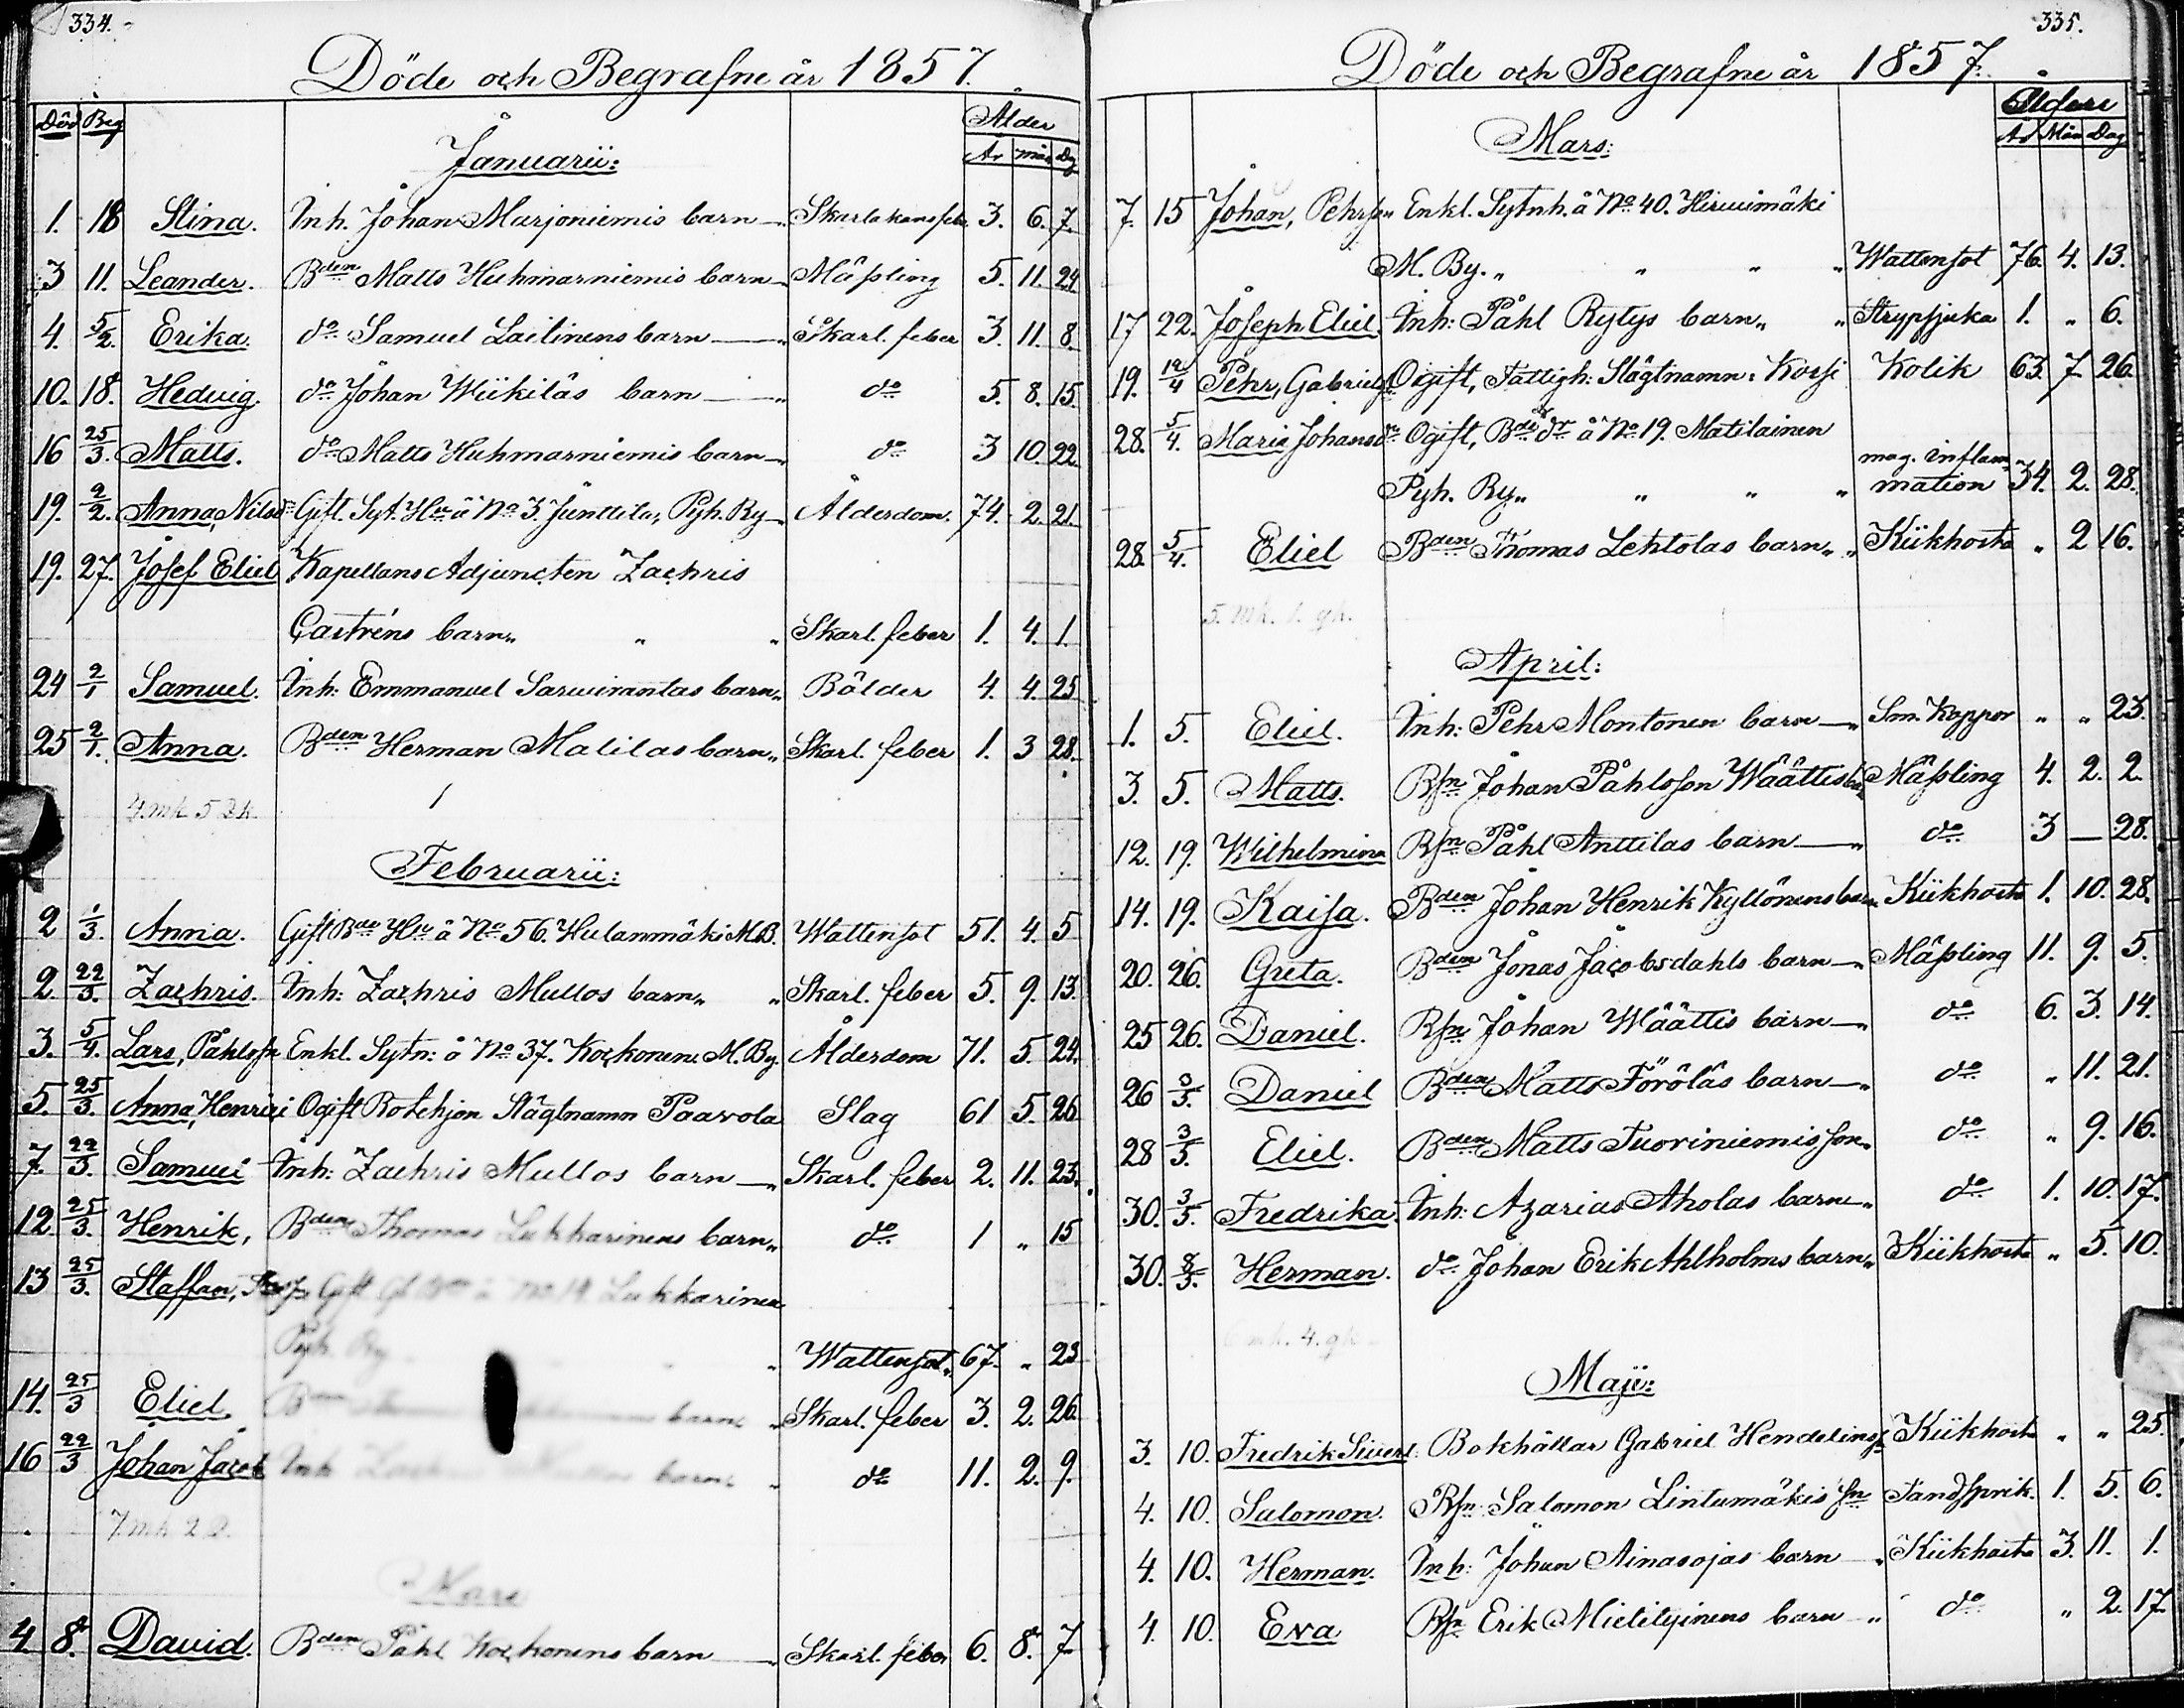 334.
Döde och Begrafne år 1857.
Död Beg Ålder
År mån Dag
Januarii:
1. 18 Stina. Inh. Johan Marjoniemis barn Skarlakansfeb. 3. 6. 7.
3 11. Leander. Bden Matts Huhmarniemis barn Mäßling 5. 11. 24
4. 5/2. Erika. do Samuel Lailinens barn Skarl. feber 3. 11. 8.
10. 18. Hedvig. do Johan Wiikiläs barn do 5. 8. 15.
16 25/3. Matts. do Matts Huhmarniemis barn do 3 10. 22
19. 2/2. Anna, Nilsdr Gift. Syt. Hu å No 3. Junttila, Pyh. By Ålderdom. 74. 2. 21.
19. 27. Josef Eliel Kapellans Adjuncten Zachris
Castréns barn „ „ „ Skarl. feber 1. 4. 1.
24 2/1 Samuel. Inh: Emmanuel Sarwirantas barn „ Bölder 4. 4. 25
25 2/1. Anna. Bden Herman Matilas barn „ Skarl. feber 1. 3 28.
4 mk 5 Bk.
Februarii:
2 1/3. Anna. Gift Bde Hu å No 56. Hulanmäki M.B. Wattensot 51. 4. 5
2. 22/3. Zachris. Inh: Zachris Mullos barn „ „ Skarl. feber 5. 9. 13.
3. 5/4. Lars, Påhlssn Enkl. Sytn: å No 37. Korhonen M. By. Ålderdom 71. 5. 24.
5. 25/3. Anna, Henrici Ogift Rotehjon Slägtnamn Paavola Slag 61 5. 26
7. 22/3. Samuel Inh: Zachris Mullos barn Skarl. feber 2. 11. 23.
12. 25/3. Henrik, Bden Thomas Lukkarinens barn „ do 1 „ 15
13 25/3. Staffan, Gift å No 19. Lukkarinen
Pyh. By „ Wattensot „ 67. „ 23
14. 25/3 Eliel B barn Skarl. feber 3. 2. 26.
16 22/3 Johan Jacob Inh barn do 11. 2. 9.
7 mk 2 Q.
Mars
4. 8. David. Bden Påhl Korhonens barn Skarl. feber 6. 8. 7
335.
Döde och Begrafne år 1857.
Ålder
År Mån Dag
Mars:
7. 15 Johan, Pehrssn Enkl. Sytnh. å No 40. Hirwimäki
M. By. „ „ „ „ Wattensot 76. 4. 13.
17 22. Joseph Eliel. Inh: Påhl Rytys barn „ „ Strypsjuka 1. „ 6.
19. 12/4 Pehr, Gabrielss Ogift, Fattigh: Slägtnamn: Korsi Kolik 63. 7. 26.
28. 5/4. Maria Johansdr Ogift, Bde dr å No 19. Matilainen
Pyh. By „ „ „ „ mag. inflammation 34. 2. 28.
28. 5/4. Eliel Bden Thomas Lehtolas barn „ „ Kikhosta „ 2 16.
5. mk. 1. qk.
April:
1. 5. Eliel. Inh: Pehr Montonen barn Sm. Koppor „ „ 23.
3. 5. Matts. Bsn Johan Påhlsson Wäättis b. Mäßling 4. 2. 2.
12. 19. Wilhelmina Bsn Påhl Anttilas barn do 3 — 28.
14. 19. Kaisa. Bden Johan Henrik Kyllönens barn Kikhosta 1. 10. 28.
20. 26. Greta. Bden Jonas Jacobsdahls barn Mäßling 11. 9. 5.
25 26. Daniel. Bsn Johan Wäättis barn do 6. 3. 14.
26 3/5. Daniel Bden Matts Töröläs barn do „ 11. 21.
28 3/5. Eliel. Bden Matts Tuoriniemis son „ do „ 9. 16.
30. 3/5. Fredrika. Inh: Azarias Aholas barn „ do 1. 10. 17.
30. 3/5. Herman. do Johan Erik Ahlholms barn „ Kikhosta „ 5. 10.
6 mk. 4. qk
Maji:
3. 10. Fredrik Sivert: Bokhållar Gabriel Hendelins sn Kikhosta „ „ 25.
4. 10. Salomon. Bsn Salomon Lintumäkis sn Tandsprik. 1. 5. 6.
4. 10. Herman. Inh: Johan Ainasojas barn „ Kikhosta 3. 11. 1.
4. 10. Eva Bsn Erik Mielityinens barn „ do „ 2. 17